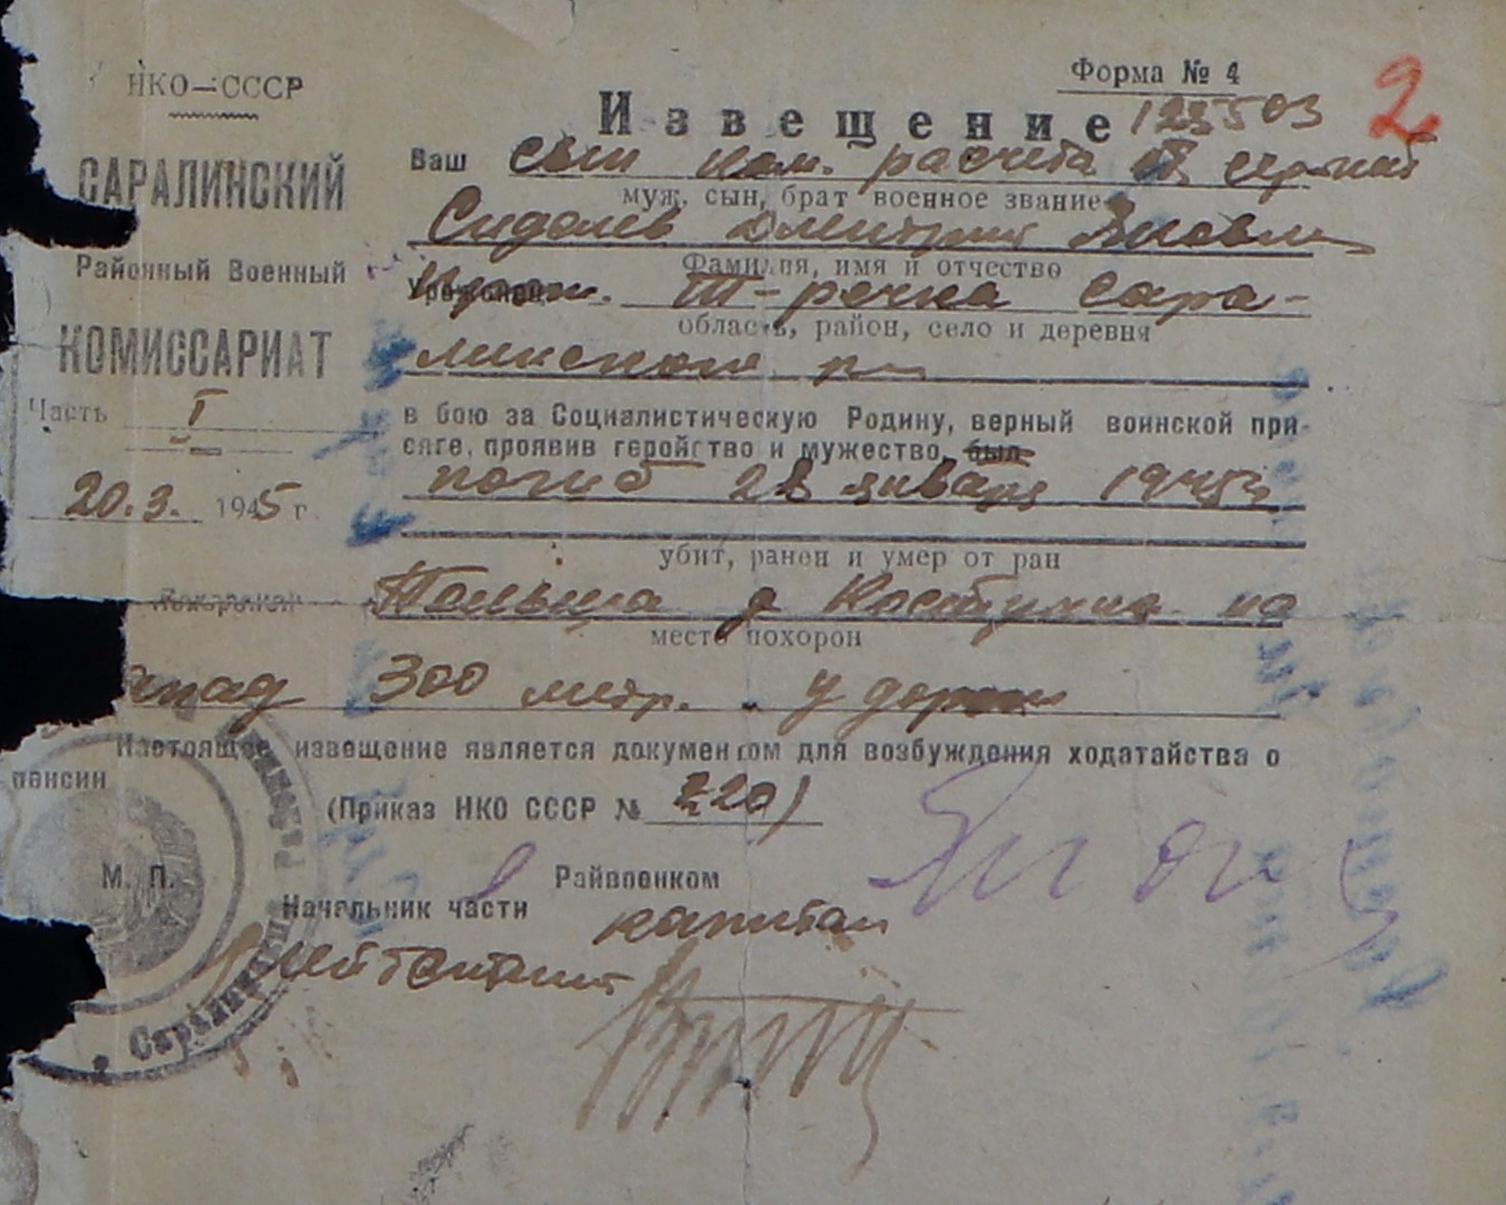 НКО—СССР
Форма № 4
2
Извещение 123503
САРАЛИНСКИЙ
Ваш сын ком. расчета сержант
муж, сын, брат военное звание
Дмитрий Яковл
Районный Военный
Фамилия, имя и отчество
III-речка Сара-
область, район, село и деревня
КОМИССАРИАТ
линского р-н
Часть I
в бою за Социалистическую Родину, верный воинской при-
сяге, проявив геройство и мужество, был
погиб 28 января 1945г.
20.3. 1945 г.
убит, ранен и умер от ран
Похоронен Польша д на
место похорон
апад 300 метр. у дороги
Настоящее извещение является документом для возбуждения ходатайства о
пенсии
(Приказ НКО СССР № 220)
М. П.
Райвоенком
Начальник части
капитан
лейтенант